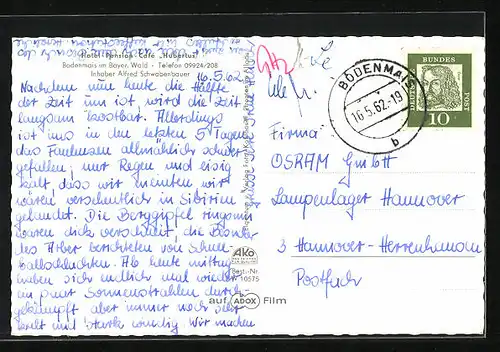 Hotel Pension Café „Hubertus"
Bodenmais im Bayer. Wald - Telefon 09924/208
Inhaber Alfred Schwabenbauer
16.5.62
Nachdem nun heute die Hälfte
der Zeit um ist, wird die Zeit
langsam kostbar. Allerdings
ist uns in den letzten 5 Tagen
das Faulenzen allmählich schwer
gefallen, nur Regen und eisig
kalt, dass wir meinten wir
wären versehentlich in Sibirien
gelandet. Die Berggipfel ringsum
waren dick verschneit, die
des Arber berichteten von Schnee
ballschlachten. Ab heute mittag
haben sich endlich mal wieder
ein paar Sonnenstrahlen durch
gekämpft aber immer noch sehr
kalt und starke windig. Wir machen
AKO
Best.-Nr.
W 10575
auf ADOX Film
BODENMAIS
16.5.62-19
b
DEUTSCHE
BUNDES
POST
10
Firma
OSRAM GmbH
Lampenlager Hannover
3 Hannover-Herrenhausen
Postfach